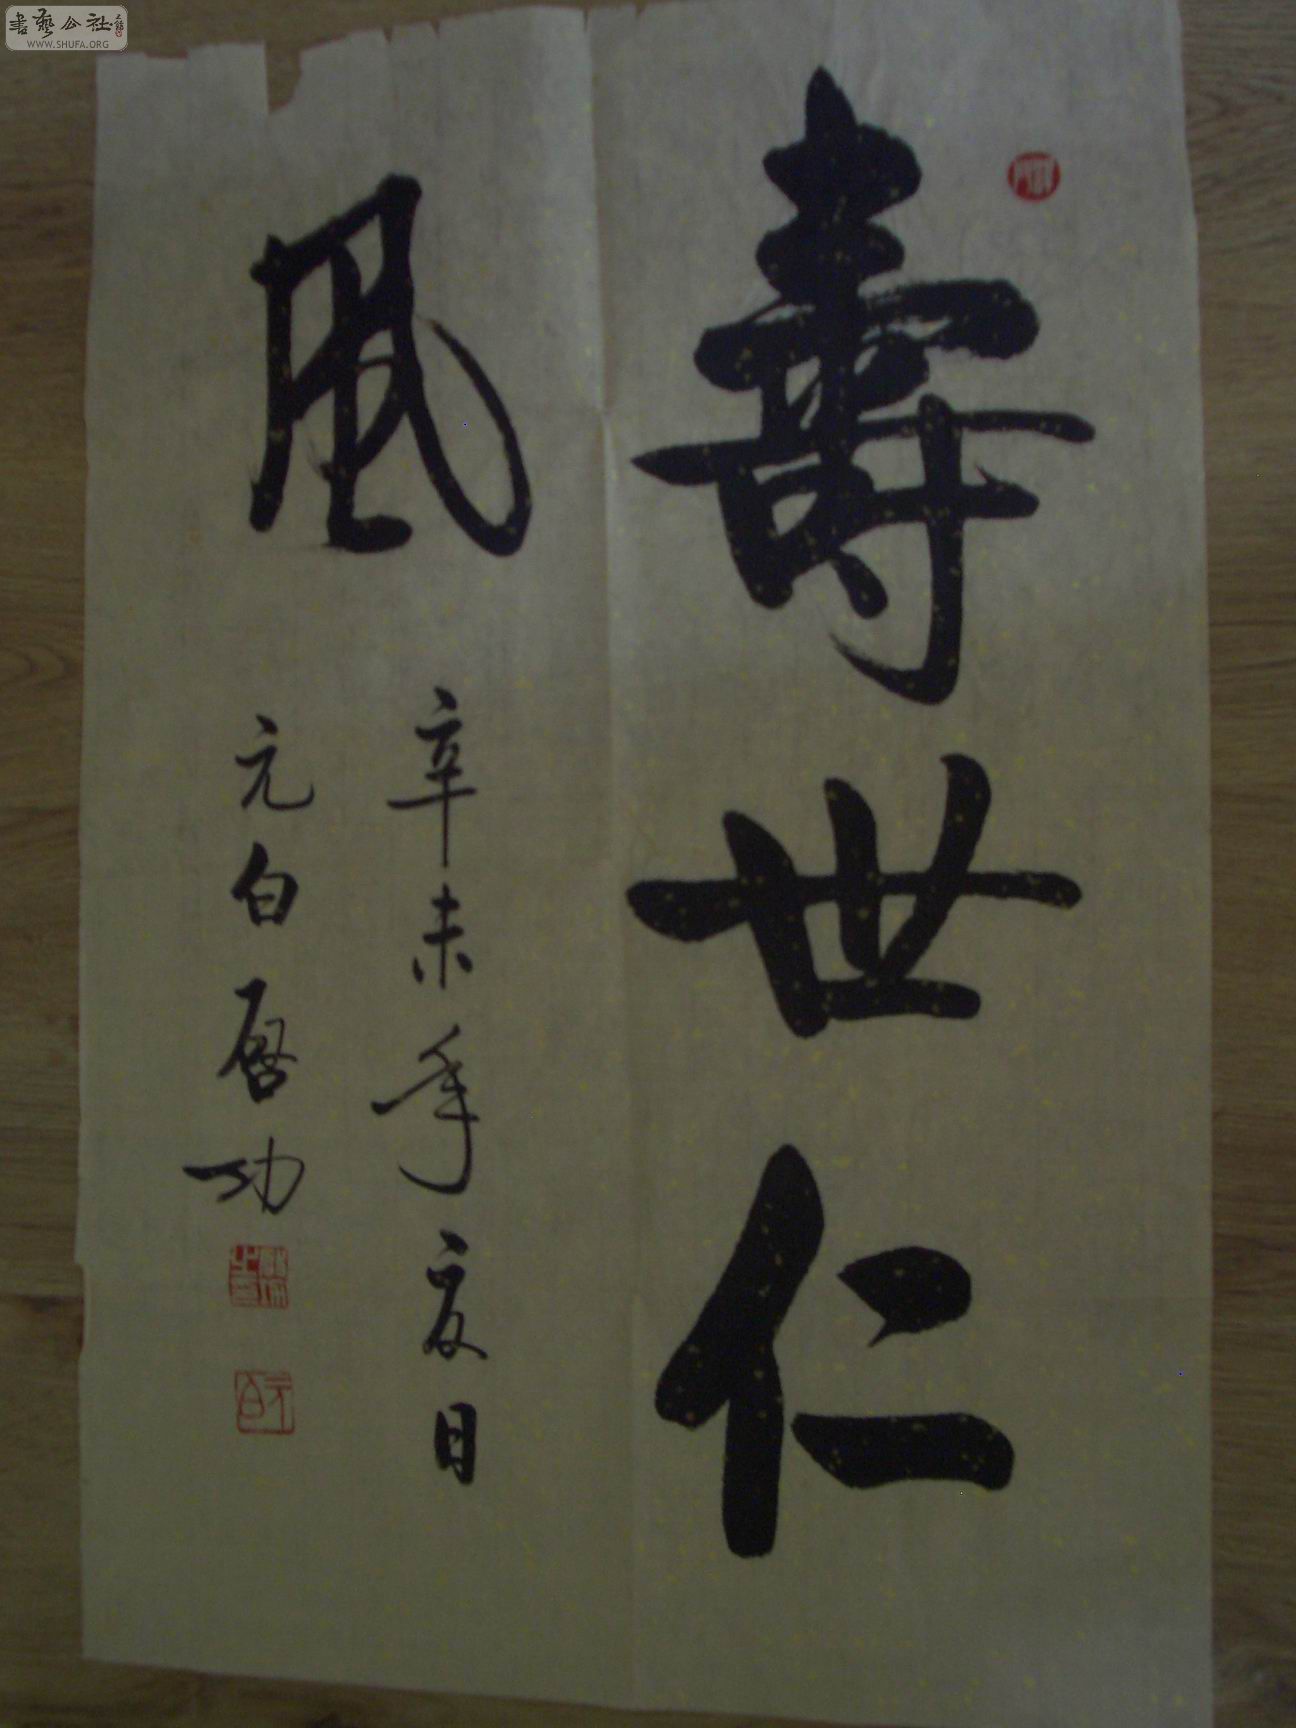 壽世仁
風
辛未年夏日
元白启功
元白
書藝公社
WWW.SHUFA.ORG